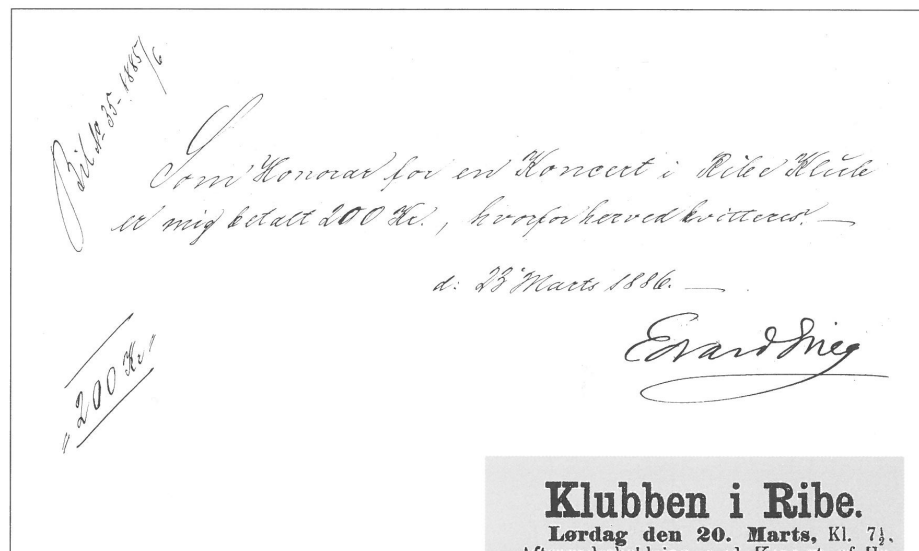 Bil No 35-1885/6
Som Honorar for en Koncert i Ribe Klub
er mig betalt 200 Kr., hvorfor herved kvitteres.—
d: 23 Marts 1886.—
Edvard Grieg
"200 Kr"
Klubben i Ribe.
Lørdag den 20. Marts, Kl. 7½.